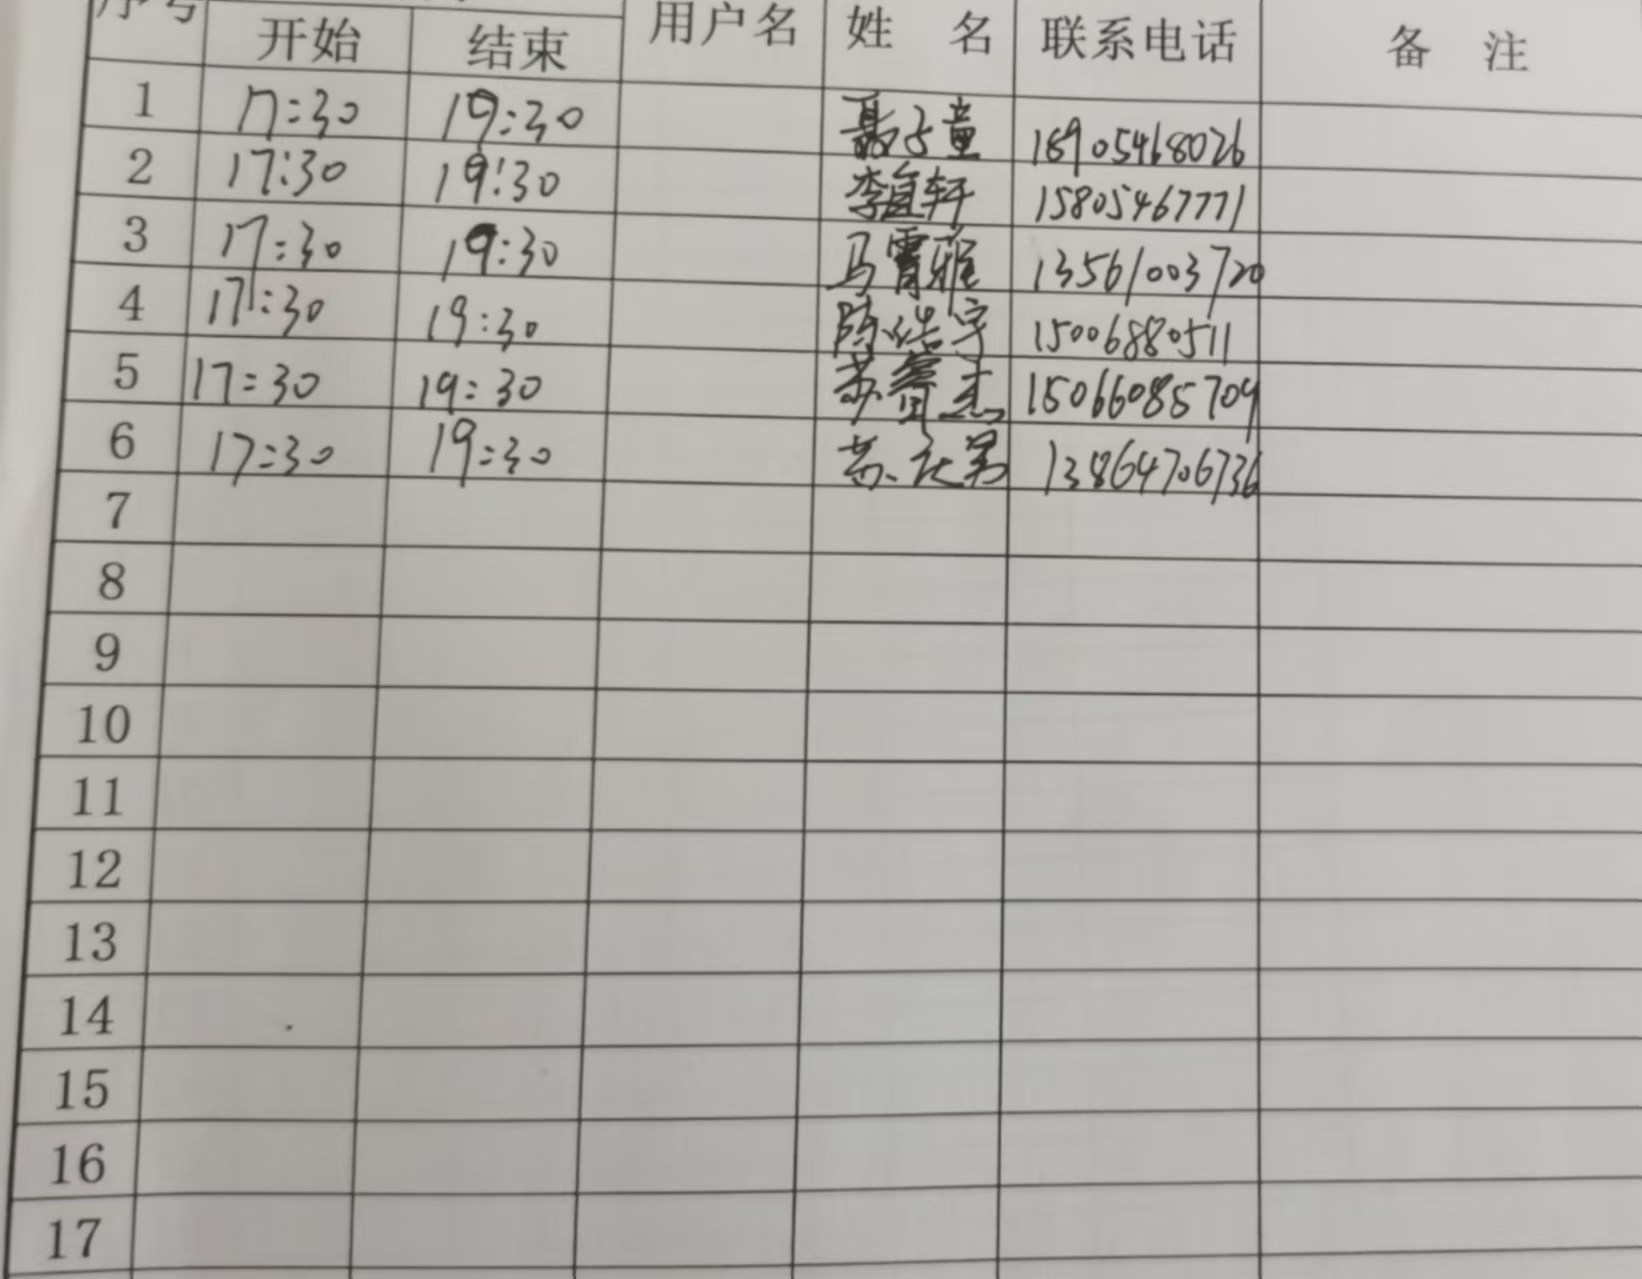 序号
开始 结束 用户名 姓 名 联系电话 备 注
1 17:30 19:30 聂子童 18905468026
2 17:30 19:30 李宜轩 15805467771
3 17:30 19:30 马霄雅 13561003720
4 17:30 19:30 陈浩宇 15006880511
5 17:30 19:30 15066085709
6 17:30 19:30 13864706736
7
8
9
10
11
12
13
14
15
16
17